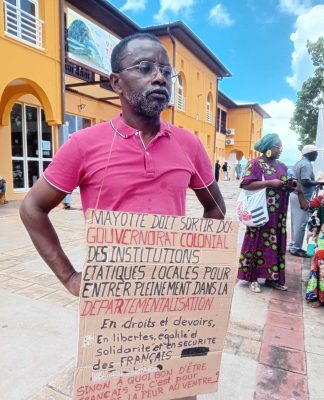 MAYOTTE DOIT SORTIR DU
GOUVERNORAT COLONIAL
DES INSTITUTIONS
ETATIQUES LOCALES POUR
ENTRER PLEINEMENT DANS LA
DEPARTEMENTALISATION
En droits et devoirs,
En libertés, égalité et
Solidarité et en SECURITE
des FRANÇAIS
SINON À QUOI BON D'ÊTRE
FRANÇAIS SI C'EST POUR
LA PEUR AU VENTRE